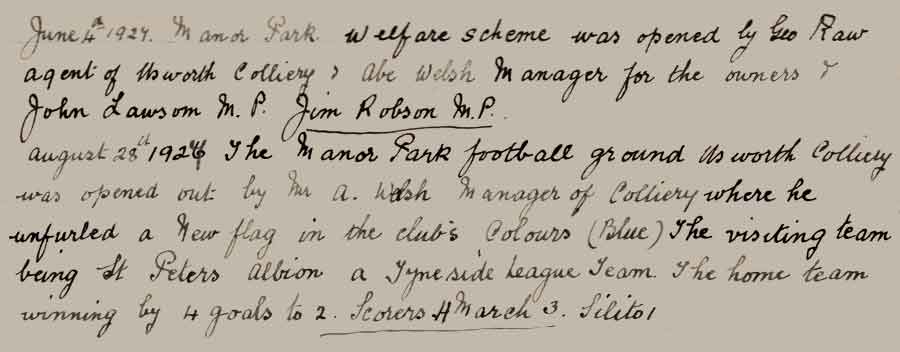 June 4th 1927. Manor Park Welfare scheme was opened by Geo Raw
agent of Usworth Colliery & Abe Welsh Manager for the owners &
John Lawsom M.P. Jim Robson M.P.
August 28th 1926 The Manor Park football ground Usworth Colliery
was opened out by Mr A. Welsh Manager of Colliery where he
unfurled a New flag in the club's Colours (Blue) The visiting team
being St Peters Albion a Tyneside League Team. The home team
winning by 4 goals to 2. Scorers H March 3. Silito 1